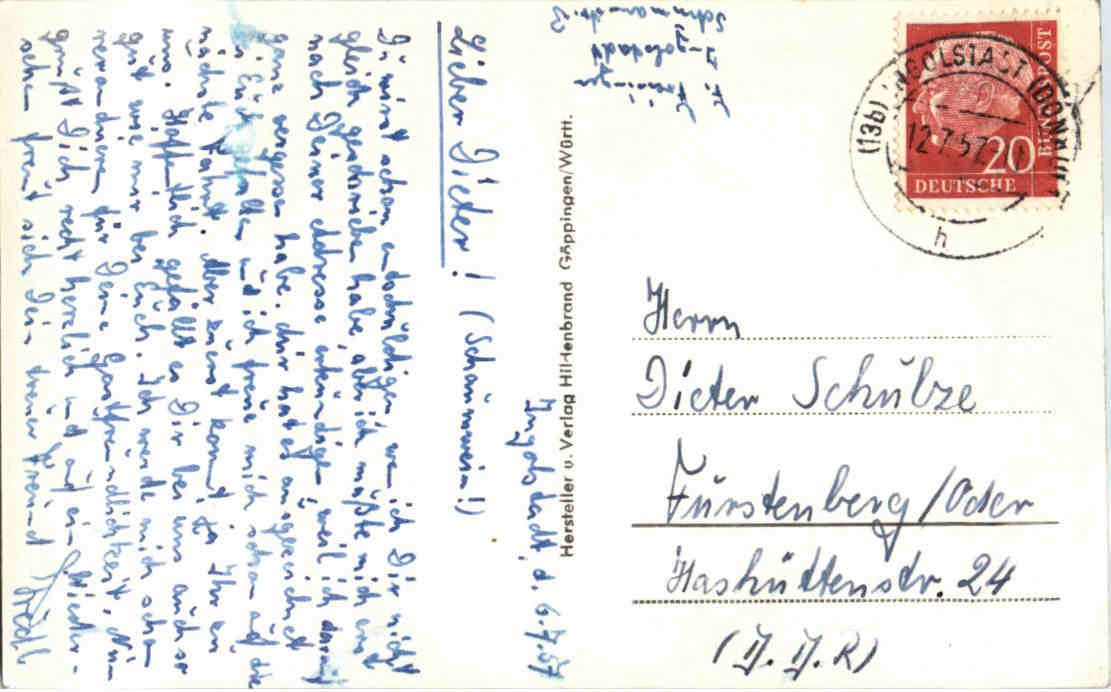 Ingolstadt, d. 6.7.57
Lieber Dieter! (Schaumwein!)
Du wirst schon entschuldigen, wen ich Dir nicht
gleich geschrieben habe, aber ich mußte mich erst
nach Deiner Adresse erkundigen, weil ich darauf
ganz vergessen habe. Mir hat es ausgezeichnet
bei Euch gefallen und ich freue mich schon auf die
nächste Fahrt. Aber zuerst kommt ja Ihr zu
uns. Hoffentlich gefällt es Dir bei uns auch so
gut wie mir bei Euch. Ich werde mich schon
revanchieren für Deine Gastfreundlichkeit. Nun
grüßt Dich recht herzlich und auf ein Wieder-
sehen freut sich Dein treuer Freund Friedl
Ingolstadt
Hersteller u. Verlag Hillenbrand Göppingen/Württ.
(13b) INGOLSTADT (DONAU)
12.7.57
h
20
DEUTSCHE
BUNDESPOST
Herrn
Dieter Schulze
Fürstenberg/Oder
Hashüttenstr. 24
(D.D.R)